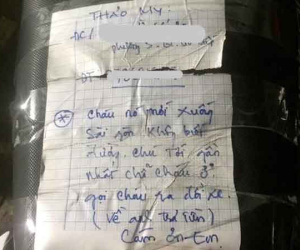 THẢO MY.
ĐC/
phường 5.
ĐT
* cháu nó mới xuống
Sài gòn không biết
đường. chú tới gần
nhất chỗ cháu ở
gọi cháu ra đổi xe.
(Về
Cảm ơn Em